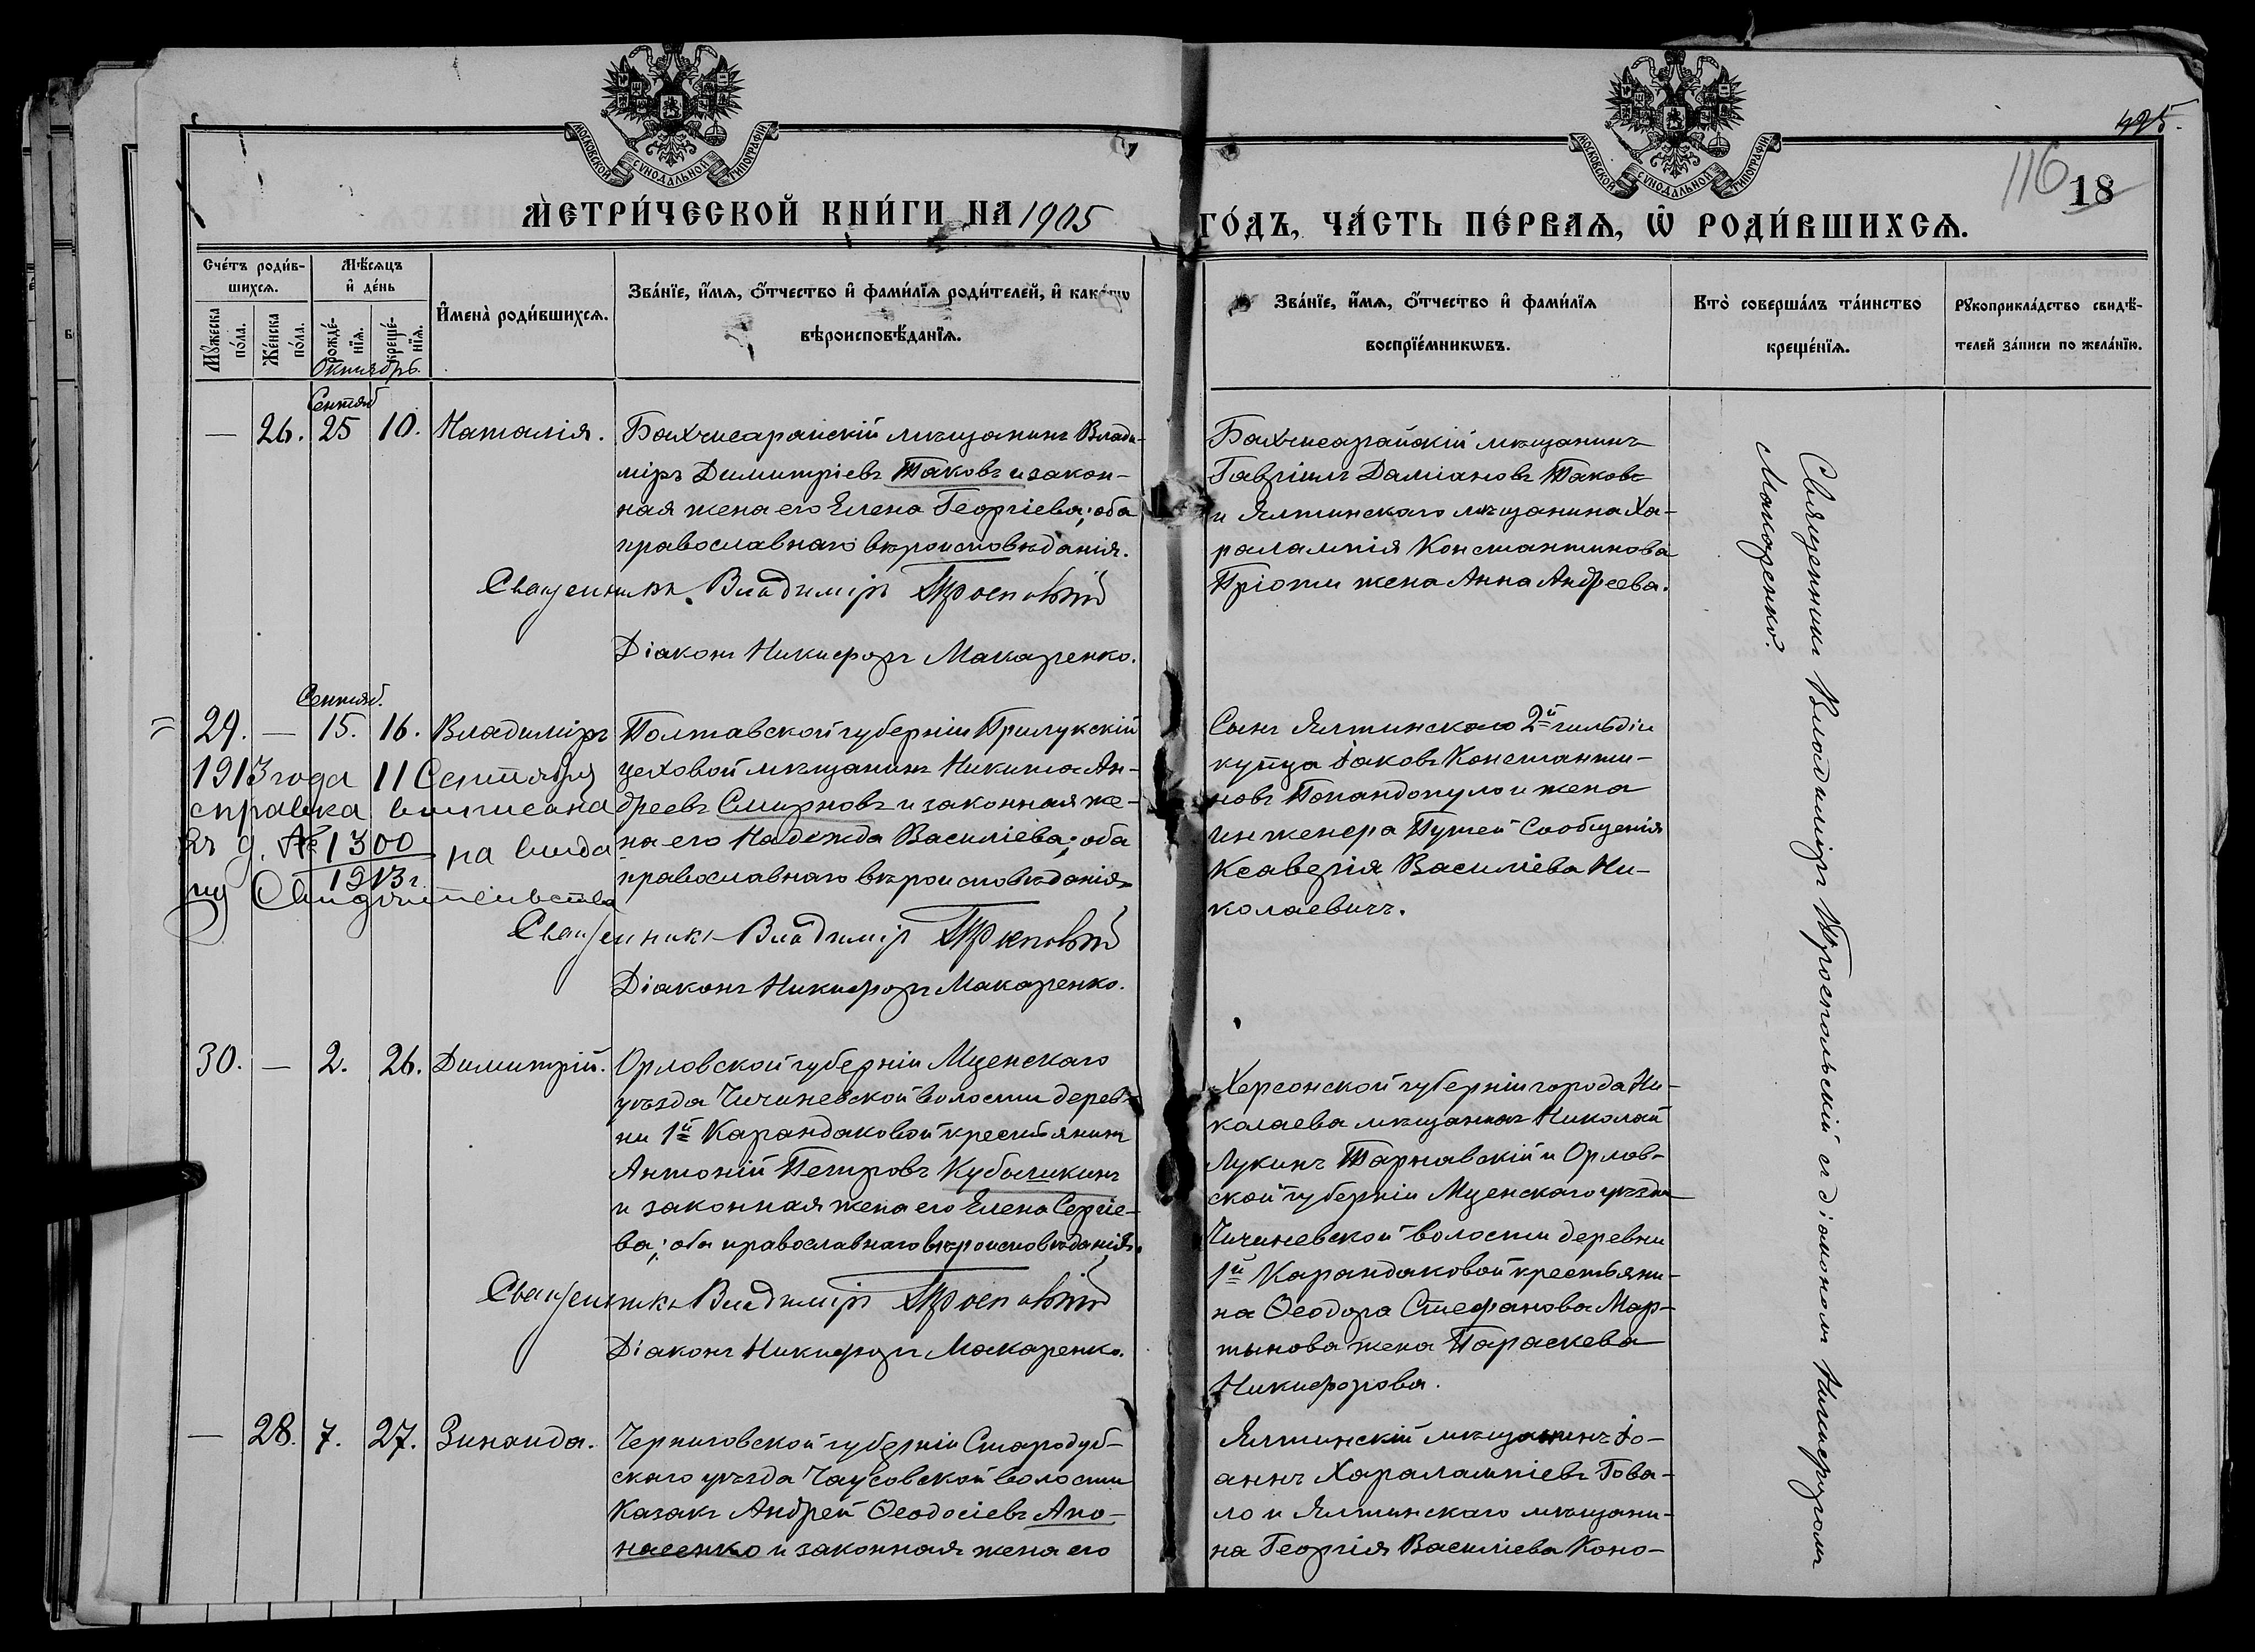 МОСКОВСКОЙ СУНОДАЛЬНОЙ ТИПОГРАФІИ
МОСКОВСКОЙ СУНОДАЛЬНОЙ ТИПОГРАФІИ
425.
116
18
МЕТРИ́ЧЕСКОЙ КНИ́ГИ НА 1905
ГО́ДЪ, ЧА́СТЬ ПЕ́РВАѦ, Ѿ РОДИ́ВШИХСѦ.
Сче́тъ роди́в-
шихсѧ.
Мꙋ́жеска по́ла.
Же́нска по́ла.
Мѣ́сѧцъ
и҆ де́нь
рожде́-
нїѧ.
креще́-
нїѧ.
Октябрь.
И҆мена̀ роди́вшихсѧ.
Зва́нїе, и҆́мѧ, ѻ҆́тчество и҆ фами́лїѧ роди́телей, и҆ како́гѡ
вѣроисповѣ́данїѧ.
Зва́нїе, и҆́мѧ, ѻ҆́тчество и҆ фами́лїѧ
воспрїе́мникѡвъ.
Кто̀ соверша́лъ та́инство
креще́нїѧ.
Рꙋкоприкла́дство свидѣ́-
телей за́писи по жела́нїю.
Сентяб
— 26. 25 10. Наталія.
Бахчисарайскій мѣщанинъ Влади-
міръ Димитріевъ Таковъ и закон-
ная жена его Елена Георгіева; оба
православнаго вѣроисповѣданія.
Священникъ Владиміръ
Діаконъ Никифоръ Макаренко.
Бахчисарайскій мѣщанинъ
Гавріилъ Даміановъ Таковъ
и Ялтинскаго мѣщанина Ха-
ралампія Константинова
Пріоти жена Анна Андреева.
Священникъ Владиміръ Тростольскій съ діакономъ Никифоромъ
Макаренко.
Сентяб.
29. — 15. 16. Владиміръ
1913 года 11 Сентября
справка выписана
въ д. № 1300
1913 г.
на выда
чу Свидѣтельства
Полтавской губерніи Прилукскій
цеховой мѣщанинъ Никита Ан-
дреевъ Смирновъ и законная же-
на его Надежда Василіева; оба
православнаго вѣроисповѣданія.
Священникъ Владиміръ
Діаконъ Никифоръ Макаренко.
Сынъ Ялтинскаго 2й гильдіи
купца Іаковъ Константи-
новъ Попандопуло и жена
инженера Путей Сообщенія
Ксаверія Василіева Ни-
колаевичъ.
30. — 2. 26. Димитрій.
Орловской губерніи Мценскаго
уѣзда Чичиневской волости дерев-
ни 1й Карандаковой крестьянинъ
Антоній Петровъ Кубышкинъ
и законная жена его Елена Сергіе-
ва; оба православнаго вѣроисповѣданія.
Священникъ Владиміръ
Діаконъ Никифоръ Макаренко.
Херсонской губерніи города Ни-
колаева мѣщанинъ Николай
Лукинъ Тарнавскій и Орлов-
ской губерніи Мценскаго уѣзда
Чичиневской волости деревни
1й Карандаковой крестьяни-
на Ѳеодора Стефанова Мар-
тынова жена Параскева
Никифорова.
— 28. 7. 27. Зинаида.
Черниговской губерніи Стародуб-
скаго уѣзда Чаусовской волости
Казакъ Андрей Ѳеодосіевъ Апо-
насенко и законная жена его
Ялтинскій мѣщанинъ Іо-
аннъ Харалампіевъ Гова-
ло и Ялтинскаго мѣщани-
на Георгія Василіева Коно-